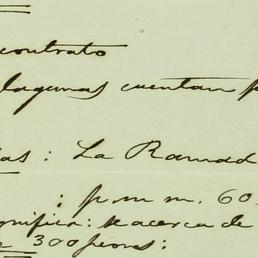 contrato
lagunas cuentan p
as: La Ramad
: p.m m. 60
onifica: se acerca de
e 300 pesos: